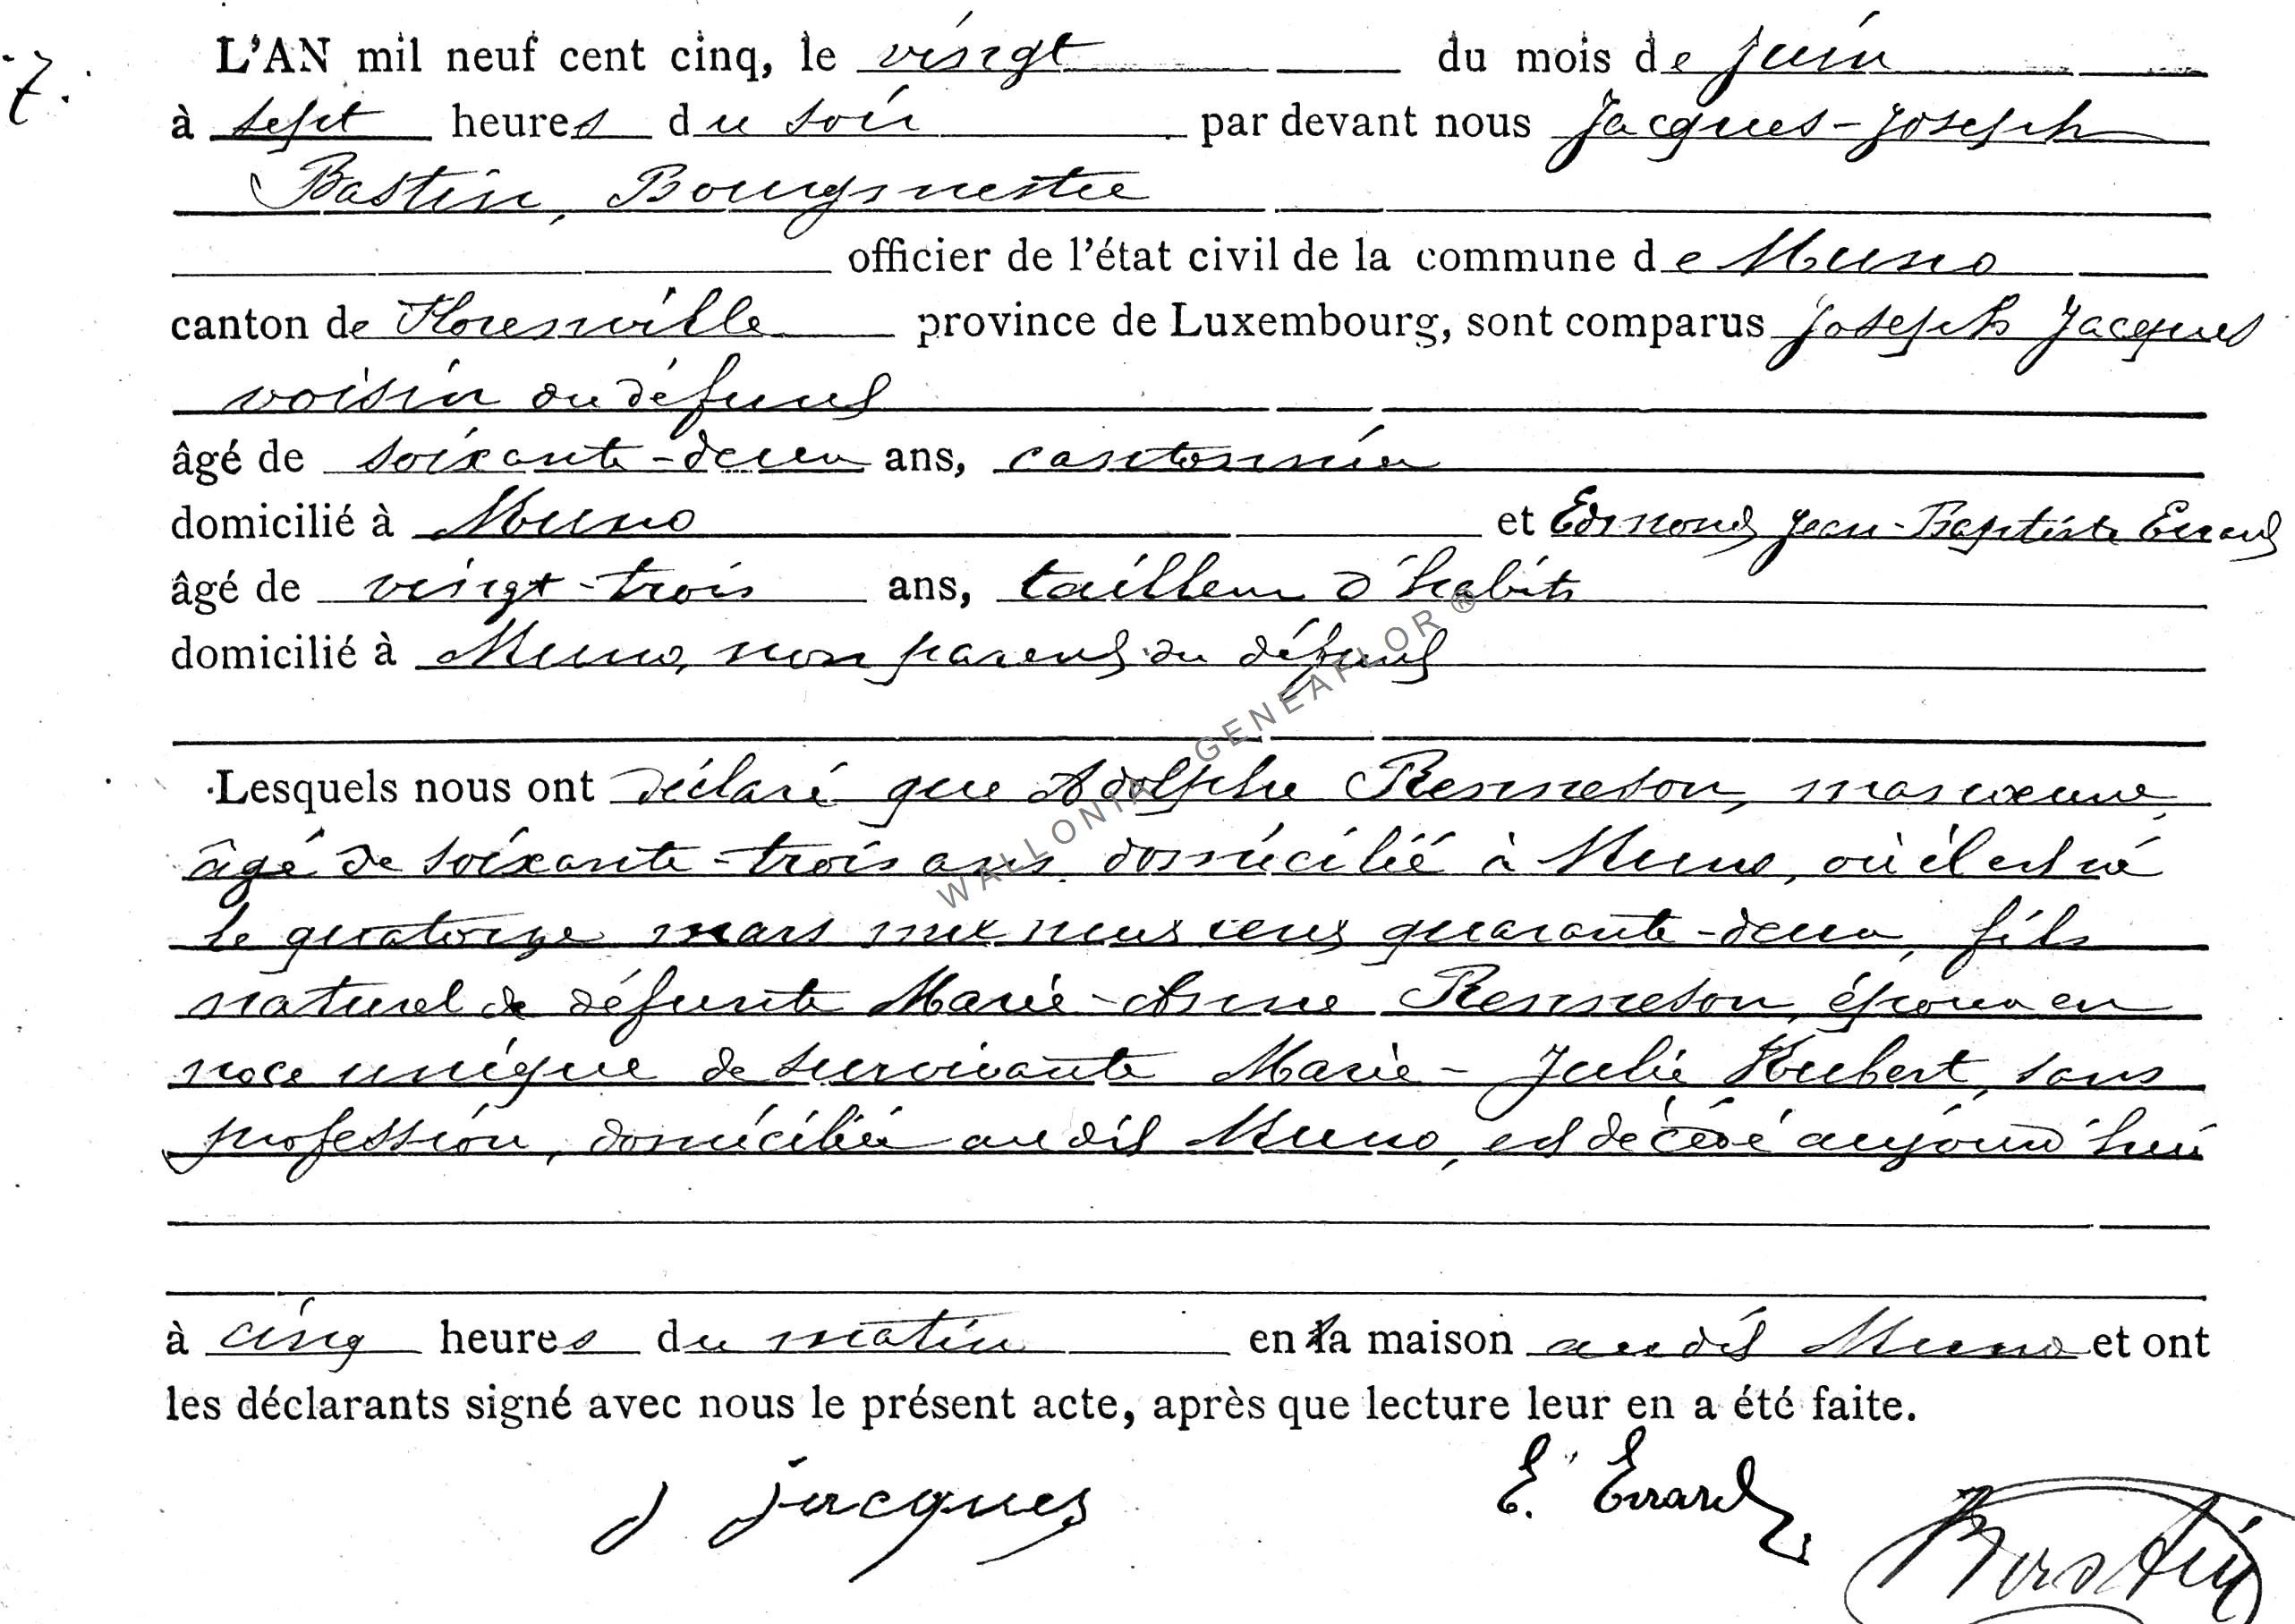 7.
L'AN mil neuf cent cinq, le vingt du mois de juin
à sept heures du soir par devant nous Jacques-Joseph
Bastin, Bourgmestre
officier de l'état civil de la commune de Muno
canton de Florenville province de Luxembourg, sont comparus Joseph Jacques
voisin du défunt
âgé de soixante-deux ans, cantonnier
domicilié à Muno et Edmond Jean-Baptiste Errard
âgé de vingt-trois ans, tailleur d'habits
domicilié à Muno, non parent du défunt
Lesquels nous ont déclaré que Adolphe Renneson, manoeuvre,
âgé de soixante-trois ans domicilié à Muno, où il est né
le quatorze mars mil huit cent quarante-deux, fils
naturel de défunte Marie-Anne Renneson, époux en
noce unique de survivante Marie-Julie Hubert, sans
profession, domiciliée au dit Muno, est décédé aujourd'hui
à cinq heures du matin en la maison au dit Muno et ont
les déclarants signé avec nous le présent acte, après que lecture leur en a été faite.
J Jacques E. Errard Bastin
WALLONIA GENEAFLOR ®